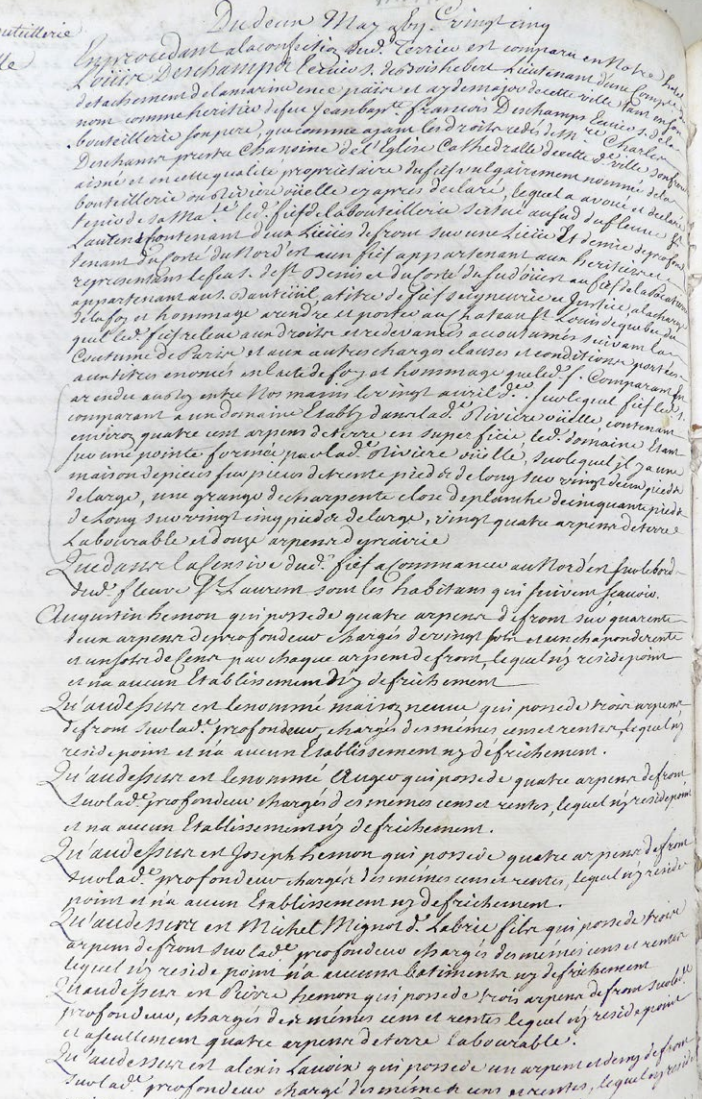 outeillerie
Du deux May gbij.c vingt cinq
En procedant a la confection dud. Terrier est comparu en Notre hotel
Loüis Deschamps Ecuier s. de Boishebert Lieutenant d'une Compe. du
detachement de la marine en ce païs et aydemajor de cette ville tant en son
nom comme heritier de feu Jean bapte. francois Deschamps Ecuier s. de la
bouteillerie son pere, que comme ayant les droits cedés de Mre. Charles
Deschamps prestre Chanoine de l'Eglise Cathedralle de cette de. ville son frere
aisné et en cette qualité proprietaire du fief vulgairement nommé de la
bouteillerie ou Riviere oüelle cy aprés declaré, lequel a avoué et declaré
tenir de sa Mate. led. fief de la bouteillerie scitué au sud du fleuve St.
Laurent contenant deux Lieües de front sur une Lieüe Et demie de profond.
tenant du costé du Nord'est au fief appartenant aux heritiers et
representans le feu s. de St. Denis et du costé du sud'oüest au fief de la pocatiere
appartenant au s. Dauteüil, a titre de fief seigneurie et Justice a la charge
de la foy et hommage a rendre et porter au Chateau St. Loüis de quebec du
quel led. fief releve aux droits et redevances accoutumés suivant la
Coutume de Paris et aux autres charges clauses et conditions portées
aux titres enoncés en l'acte de foy et hommage que led. s. Comparant en
a rendu au Roy entre Nos mains le vingt avril der. sur lequel fief led. s.
comparant a un domaine Etably dans lad. Riviere oüelle, contenant
environ quatre cent arpens de terre en superficie, led. domaine Etant
sur une pointe formée par lad. Riviere oüelle, sur lequel il y a une
maison de pieces sur pieces de trente pieds de long sur vingt deux pieds
de large, une grange de charpente close de planche de cinquante pieds
de Long sur vingt cinq pieds de large, vingt quatre arpens de terre
Labourable et douze arpens de prairie
Que dans la Censive dud. fief a commencer au Nord'est sur le bord
dud. fleuve St. Laurent sont les habitans qui suivent scavoir.
Augustin hemon qui possede quatre arpens de front sur quarente
deux arpens de profondeur chargés de vingt sols et un chapon de rente
et un sols de Cens par chaque arpent de front, lequel n'y reside point
et n'a aucun Etablissement ny defrichement
Qu'audessus est le nommé maison neuve qui possede trois arpens
de front sur lad. profondeur, chargés des mêmes cens et rentes, lequel n'y
reside point et n'a aucun Etablissement ny défrichement.
Qu'audessus est le nommé Auger qui possede quatre arpens de front
sur lad. profondeur chargés des mêmes cens et rentes, lequel n'y reside point
et n'a aucun Etablissement ny defrichement.
Qu'audessus est Joseph hemon qui possede quatre arpens de front
sur lad. profondeur chargés des mêmes cens et rentes, lequel n'y reside
point et n'a aucun Etablissement ny defrichement.
Qu'audessus est Michel Mignot d. Labrie fils qui possede trois
arpens de front sur lad. profondeur chargés des mêmes cens et rentes
lequel n'y reside point n'a aucuns batiments ny defrichement
Qu'audessus est Pierre hemon qui possede trois arpens de front sur lad.
profondeur, chargés des mêmes cens et rentes lequel n'y reside point
et a seullement quatre arpens de terre labourable.
Qu'audessus est alexis Lavoix qui possede un arpent et demy de front
sur lad. profondeur chargé des mêmes cens et rentes, lequel n'y reside